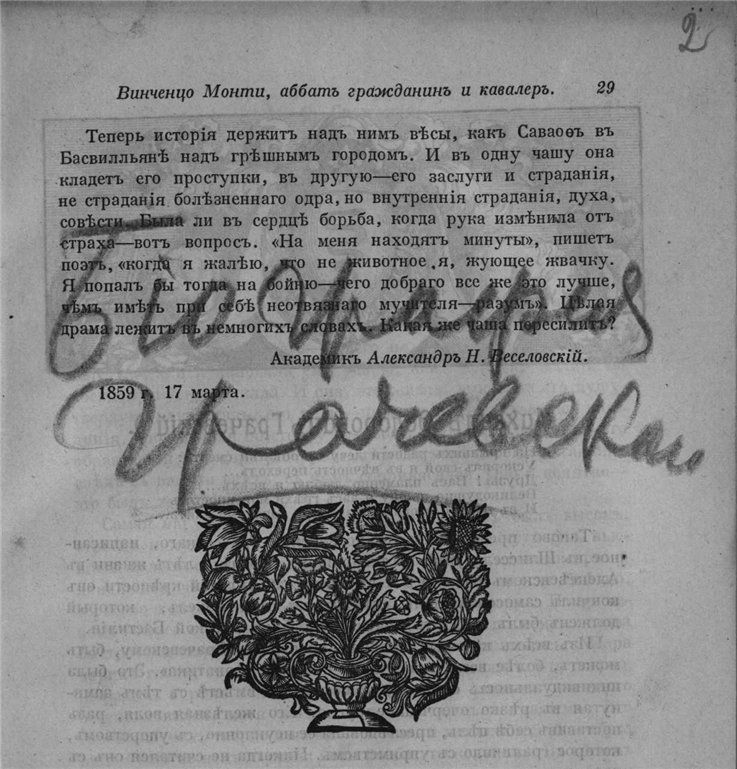 2
Винченцо Монти, аббатъ гражданинъ и кавалеръ. 29
Теперь исторія держитъ надъ нимъ вѣсы, какъ Саваоѳъ въ
Басвилльянѣ надъ грѣшнымъ городомъ. И въ одну чашу она
кладетъ его проступки, въ другую—его заслуги и страданія,
не страданія болѣзненнаго одра, но внутреннія страданія, духа,
совѣсти. Была ли въ сердцѣ борьба, когда рука измѣнила отъ
страха—вотъ вопросъ. «На меня находятъ минуты», пишетъ
поэтъ, «когда я жалѣю, что не животное я, жующее жвачку.
Я попалъ бы тогда на бойню—чего добраго все же это лучше,
чѣмъ имѣть при себѣ неотвязнаго мучителя—разумъ». Цѣлая
драма лежитъ въ немногихъ словахъ. Какая же чаша пересилитъ?
Академикъ Александръ Н. Веселовскій.
1859 г. 17 марта.
Біографія
Грачевскаго